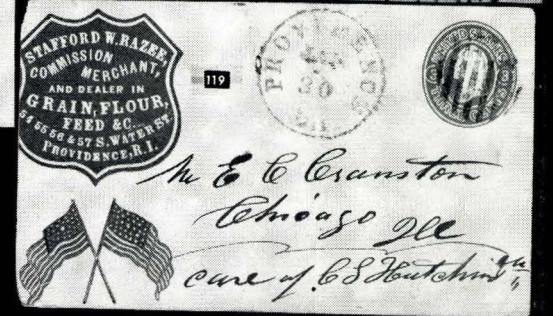 STAFFORD W. RAZEE,
COMMISSION
MERCHANT,
AND DEALER IN
GRAIN, FLOUR,
FEED &C.
54 55 56 & 57 S. WATER ST.
PROVIDENCE, R.I.
119
PROVIDENCE
30
Mr E C Cranston
Chicago Ill
care of C S Hutchins